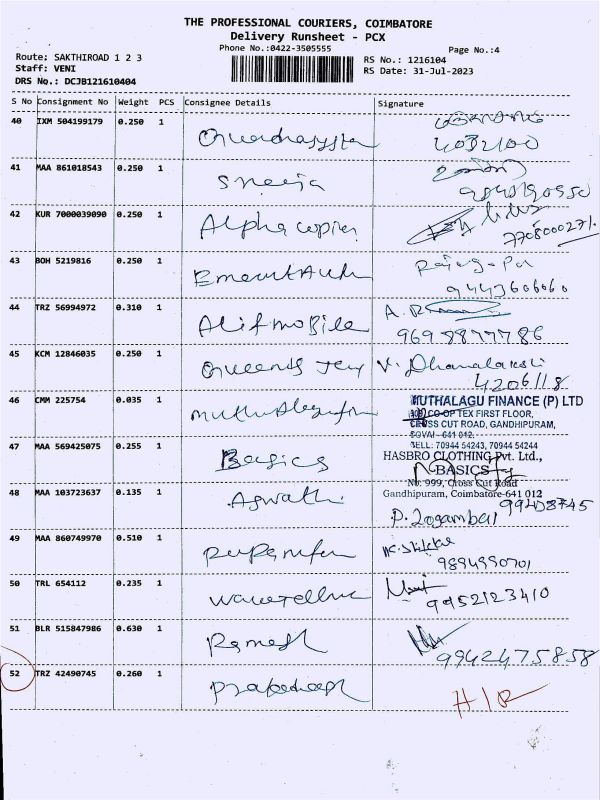 THE PROFESSIONAL COURIERS, COIMBATORE
Delivery Runsheet - PCX
Phone No.:0422-3505555
Page No.:4
Route: SAKTHIROAD 1 2 3
Staff: VENI
DRS No.: DCJB121610404
RS No.: 1216104
RS Date: 31-Jul-2023
S No Consignment No Weight PCS Consignee Details Signature
40 IXM 504199179 0.250 1
4032100
41 MAA 861018543 0.250 1 Sneeja
42 KUR 7000039090 0.250 1 Alpha copier
7708000271
43 BOH 5219816 0.250 1
9443606060
44 TRZ 56994972 0.310 1 Alif mobile
9698877786
45 KCM 12846035 0.250 1 V. Dhanalakshi
4206118
46 CMM 225754 0.035 1
MUTHALAGU FINANCE (P) LTD
CO-OP TEX FIRST FLOOR,
CROSS CUT ROAD, GANDHIPURAM,
COVAI - 641 012.
CELL: 70944 54243, 70944 54244
47 MAA 569425075 0.255 1 Basics
HASBRO CLOTHING Pvt. Ltd.,
BASICS
No. 999, Cross Cut Road
Gandhipuram, Coimbatore-641 012
48 MAA 103723637 0.135 1 Aswathi
P. Logambal
49 MAA 860749970 0.510 1
9894990701
50 TRL 654112 0.235 1
9952123410
51 BLR 515847986 0.630 1 Ramesh
9942475858
52 TRZ 42490745 0.260 1